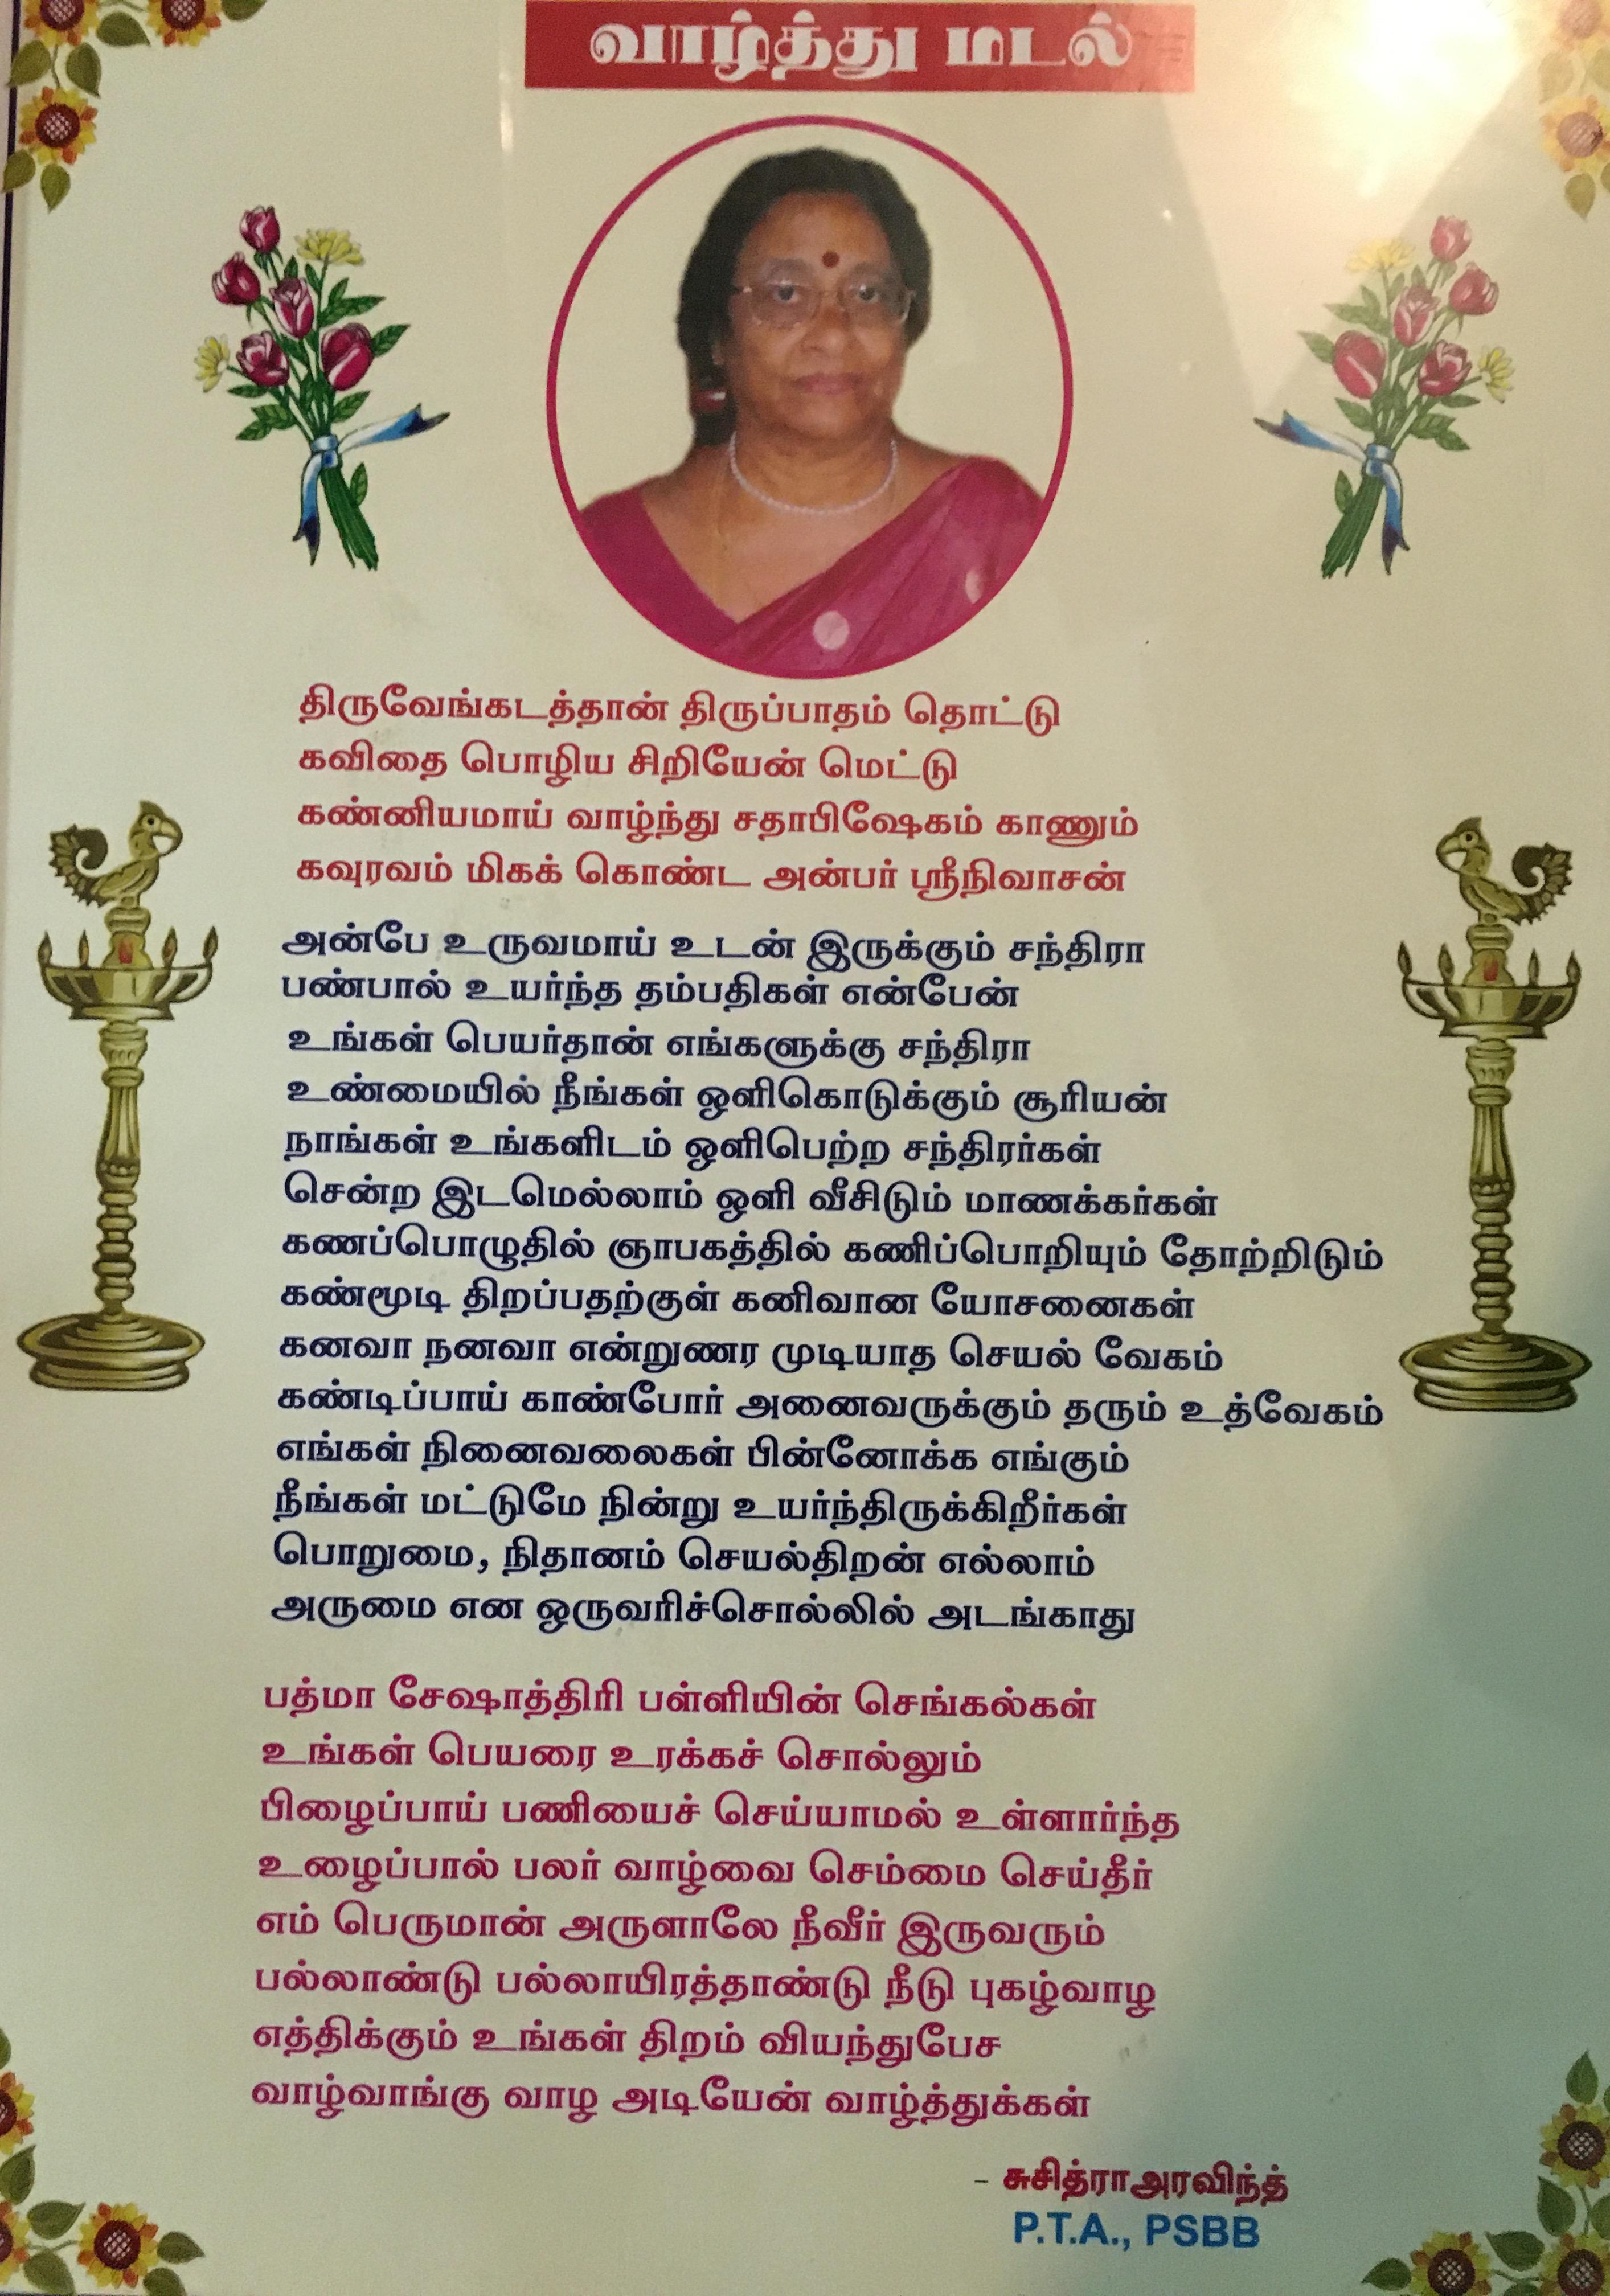 வாழ்த்து மடல்
திருவேங்கடத்தான் திருப்பாதம் தொட்டு
கவிதை பொழிய சிறியேன் மெட்டு
கண்னியமாய் வாழ்ந்து சதாபிஷேகம் காணும்
கவுரவம் மிகக் கொண்ட அன்பர் ஸ்ரீநிவாசன்
அன்பே உருவமாய் உடன் இருக்கும் சந்திரா
பண்பால் உயர்ந்த தம்பதிகள் என்பேன்
உங்கள் பெயர்தான் எங்களுக்கு சந்திரா
உண்மையில் நீங்கள் ஒளிகொடுக்கும் சூரியன்
நாங்கள் உங்களிடம் ஒளிபெற்ற சந்திரர்கள்
சென்ற இடமெல்லாம் ஒளி வீசிடும் மாணக்கர்கள்
கணப்பொழுதில் ஞாபகத்தில் கணிப்பொறியும் தோற்றிடும்
கண்மூடி திறப்பதற்குள் கனிவான யோசனைகள்
கனவா நனவா என்றுணர முடியாத செயல் வேகம்
கண்டிப்பாய் காண்போர் அனைவருக்கும் தரும் உத்வேகம்
எங்கள் நினைவலைகள் பின்னோக்க எங்கும்
நீங்கள் மட்டுமே நின்று உயர்ந்திருக்கிறீர்கள்
பொறுமை, நிதானம் செயல்திறன் எல்லாம்
அருமை என ஒருவரிச்சொல்லில் அடங்காது
பத்மா சேஷாத்திரி பள்ளியின் செங்கல்கள்
உங்கள் பெயரை உரக்கச் சொல்லும்
பிழைப்பாய் பணியைச் செய்யாமல் உள்ளார்ந்த
உழைப்பால் பலர் வாழ்வை செம்மை செய்தீர்
எம் பெருமான் அருளாலே நீவீர் இருவரும்
பல்லாண்டு பல்லாயிரத்தாண்டு நீடு புகழ்வாழ
எத்திக்கும் உங்கள் திறம் வியந்துபேச
வாழ்வாங்கு வாழ அடியேன் வாழ்த்துக்கள்
- சுசித்ராஅரவிந்த்
P.T.A., PSBB